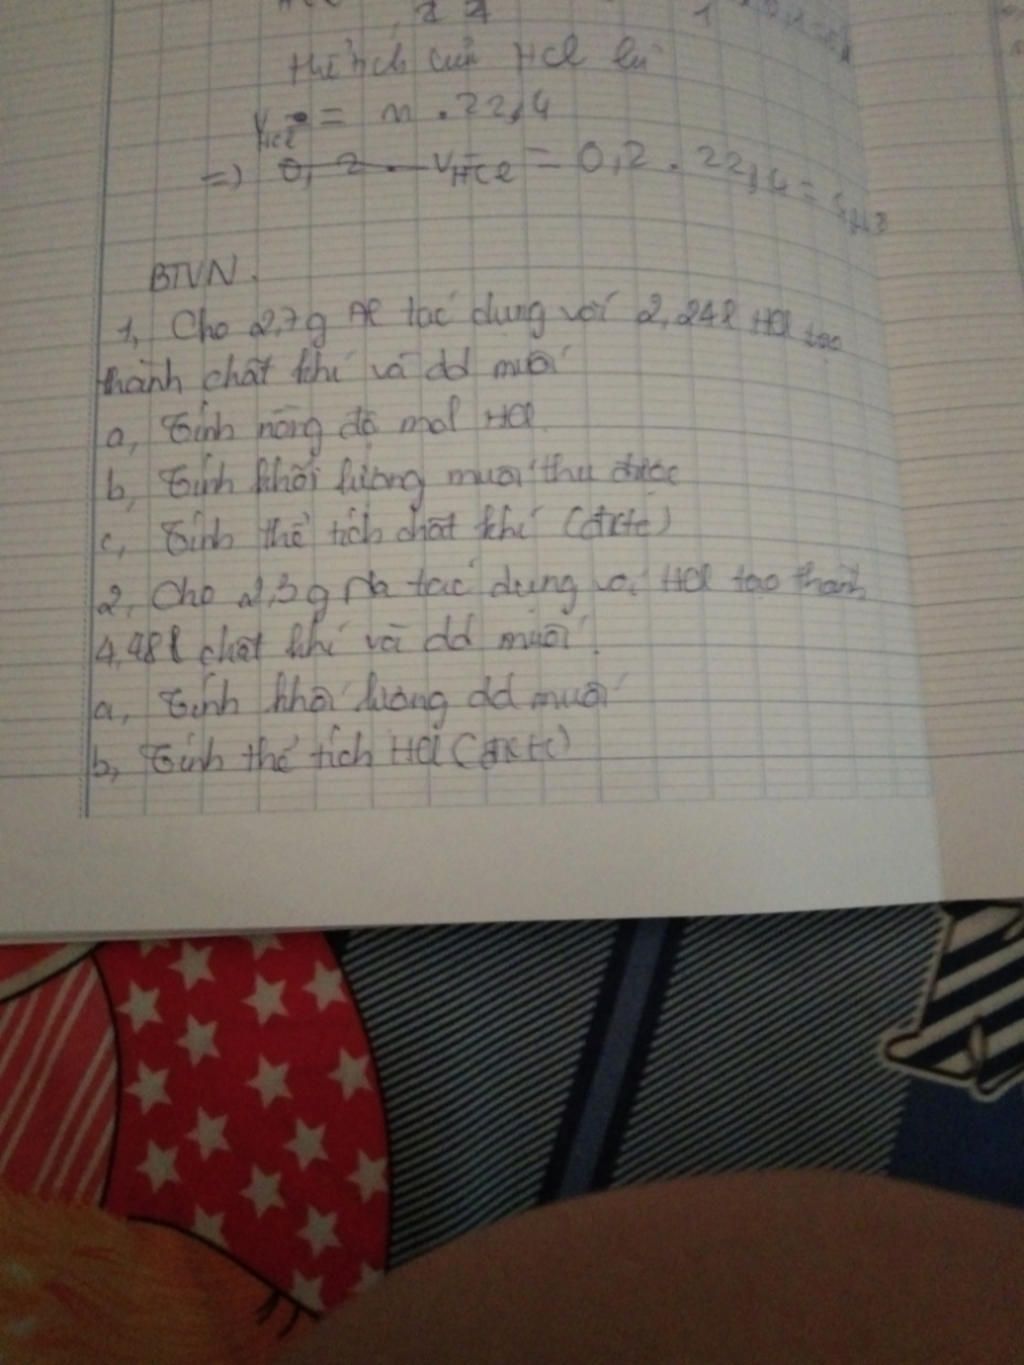 thể tích của HCl là
VHCl = n . 22,4
=> 0,2 . VHCl = 0,2 . 22,4 =
BTVN.
1, Cho 2,7g Al tác dụng với 2,24l HCl tạo
thành chất khí và dd muối
a, Tính nồng độ mol HCl.
b, Tính khối lượng muối thu được
c, Tính thể tích chất khí (đktc)
2, Cho 2,3g Na tác dụng với HCl tạo thành
4,48l chất khí và dd muối.
a, Tính khối lượng dd muối
b, Tính thể tích HCl (đktc)